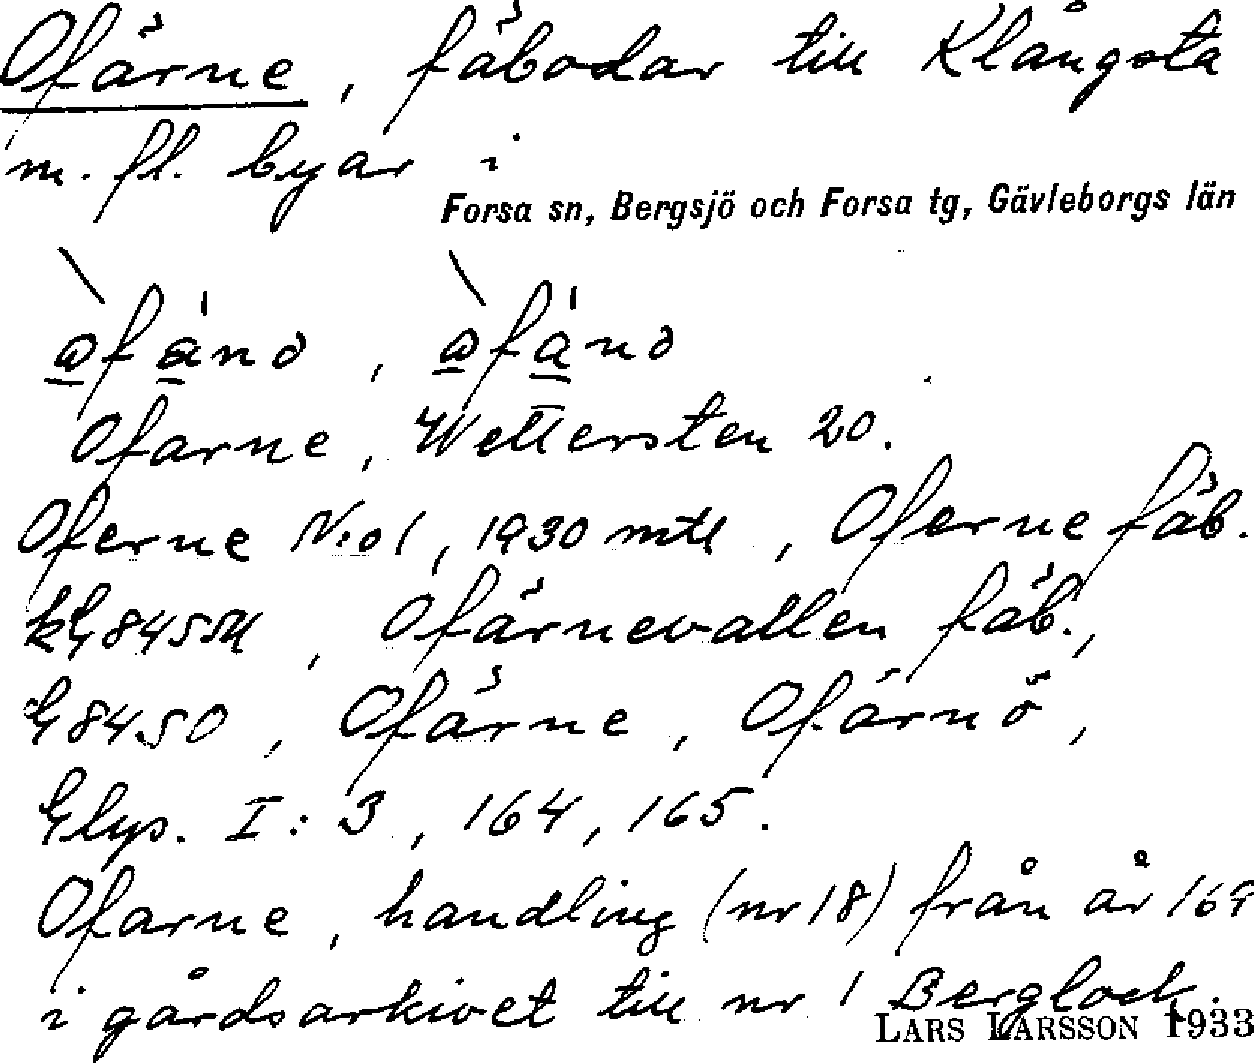 Ofärne, fäbodar till Klångsta
m. fl. byar i
Forsa sn, Bergsjö och Forsa tg, Gävleborgs län
Ofarne, Wettersten 20.
Oferne N:o 1, 1930 mtl, Oferne fäb.
84 SM, Ofärnevallen fäb.,
84 SO, Ofärne, Ofärnö,
Glys. I:3, 164, 165.
Ofarne, handling (nr 18) från år
i gårdsarkivet till nr 1 Berglock.
LARS LARSSON 1933